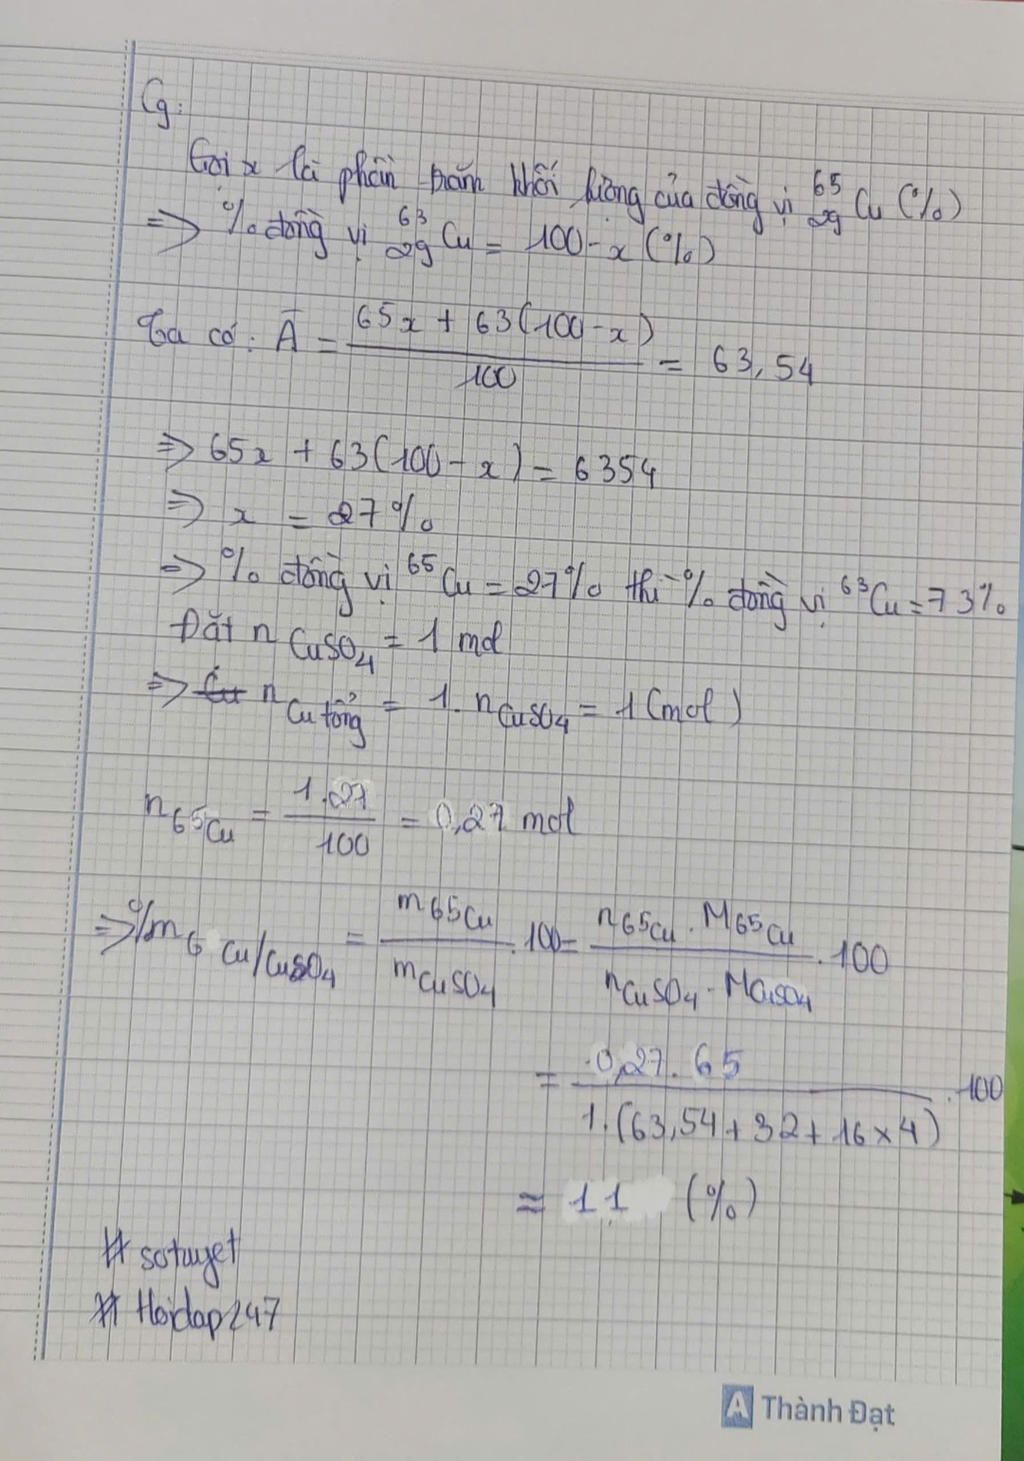 Cg:
Gọi x là phần trăm khối lượng của đồng vị ⁶⁵₂₉Cu (%)
=> % đồng vị ⁶³₂₉Cu = 100 - x (%)
Ta có: Ā = (65x + 63(100 - x))/100 = 63,54
=> 65x + 63(100 - x) = 6354
=> x = 27%
=> % đồng vị ⁶⁵Cu = 27% thì % đồng vị ⁶³Cu = 73%
Đặt n CuSO₄ = 1 mol
=> n Cu tổng = 1. n CuSO₄ = 1 (mol)
n 65Cu = 1.27/100 = 0,27 mol
=> %m 6 Cu/CuSO₄ = m 65Cu/m CuSO₄ . 100 = n 65Cu . M 65Cu/n CuSO₄ . M CuSO₄ . 100
= 0,27. 65/1.(63,54 + 32 + 16 x 4) . 100
≈ 11 (%)
# sotuyet
# Hoidap247
A Thành Đạt